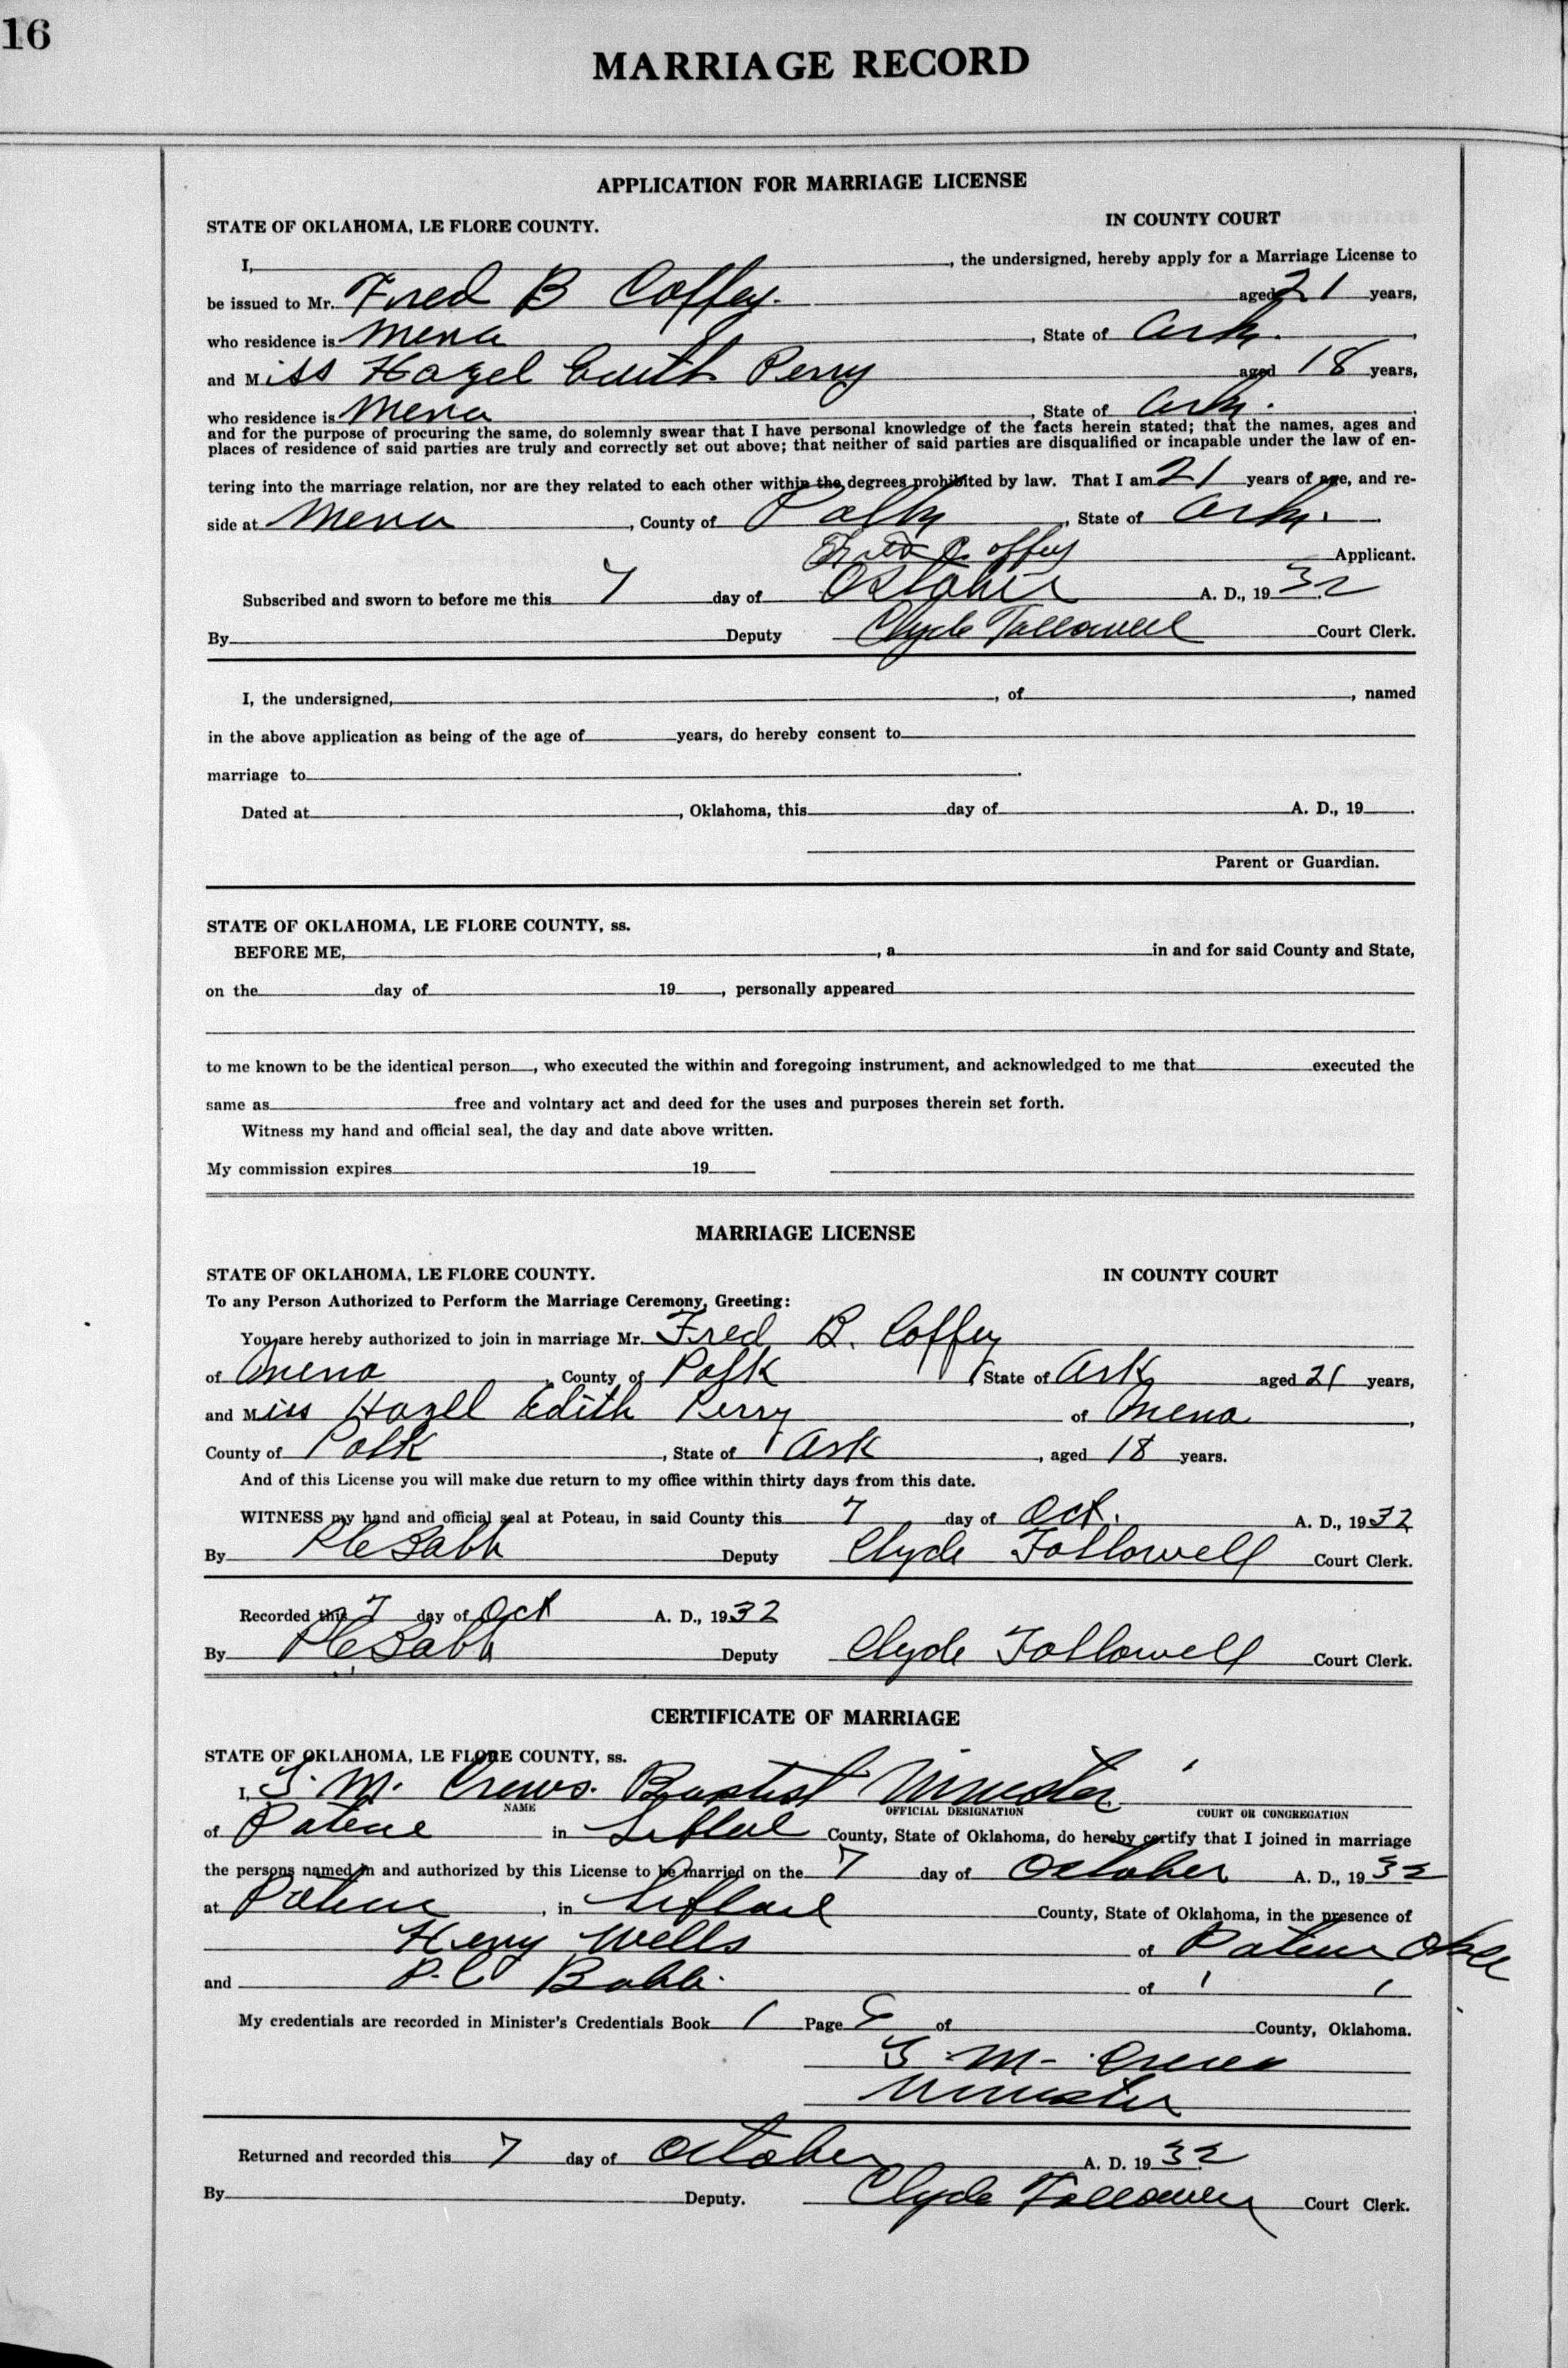 16
MARRIAGE RECORD
APPLICATION FOR MARRIAGE LICENSE
STATE OF OKLAHOMA, LE FLORE COUNTY. IN COUNTY COURT
I, , the undersigned, hereby apply for a Marriage License to
be issued to Mr. Fred B Coffey. aged 21 years,
who residence is Mena , State of Ark.
and Miss Hazel Edith Perry aged 18 years,
who residence is Mena , State of Ark.
and for the purpose of procuring the same, do solemnly swear that I have personal knowledge of the facts herein stated; that the names, ages and
places of residence of said parties are truly and correctly set out above; that neither of said parties are disqualified or incapable under the law of en-
tering into the marriage relation, nor are they related to each other within the degrees prohibited by law. That I am 21 years of age, and re-
side at Mena , County of Polk , State of Ark.
Fred Coffey Applicant.
Subscribed and sworn to before me this 7 day of October A. D., 1932
By Deputy Clyde Followell Court Clerk.
I, the undersigned, , of , named
in the above application as being of the age of years, do hereby consent to
marriage to .
Dated at , Oklahoma, this day of A. D., 19 .
Parent or Guardian.
STATE OF OKLAHOMA, LE FLORE COUNTY, ss.
BEFORE ME, , a in and for said County and State,
on the day of 19 , personally appeared
to me known to be the identical person , who executed the within and foregoing instrument, and acknowledged to me that executed the
same as free and volntary act and deed for the uses and purposes therein set forth.
Witness my hand and official seal, the day and date above written.
My commission expires 19
MARRIAGE LICENSE
STATE OF OKLAHOMA, LE FLORE COUNTY. IN COUNTY COURT
To any Person Authorized to Perform the Marriage Ceremony, Greeting:
You are hereby authorized to join in marriage Mr. Fred B. Coffey
of Mena , County of Polk , State of Ark aged 21 years,
and Miss Hazell Edith Perry of Mena ,
County of Polk , State of Ark , aged 18 years.
And of this License you will make due return to my office within thirty days from this date.
WITNESS my hand and official seal at Poteau, in said County this 7 day of Oct. A. D., 1932
By P C Babb Deputy Clyde Followell Court Clerk.
Recorded this 7 day of Oct A. D., 1932
By P C Babb Deputy Clyde Followell Court Clerk.
CERTIFICATE OF MARRIAGE
STATE OF OKLAHOMA, LE FLORE COUNTY, ss.
I, M. Crews. Baptist Minister
NAME OFFICIAL DESIGNATION COURT OR CONGREGATION
of Poteau in Leflore County, State of Oklahoma, do hereby certify that I joined in marriage
the persons named in and authorized by this License to be married on the 7 day of October A. D., 1932
at Poteau , in Leflore County, State of Oklahoma, in the presence of
Henry Wells of Poteau Okla
and P. C Babb. of " "
My credentials are recorded in Minister's Credentials Book 1 Page of County, Oklahoma.
M- Crews
Minister
Returned and recorded this 7 day of October A. D. 1932
By Deputy. Clyde Followell Court Clerk.